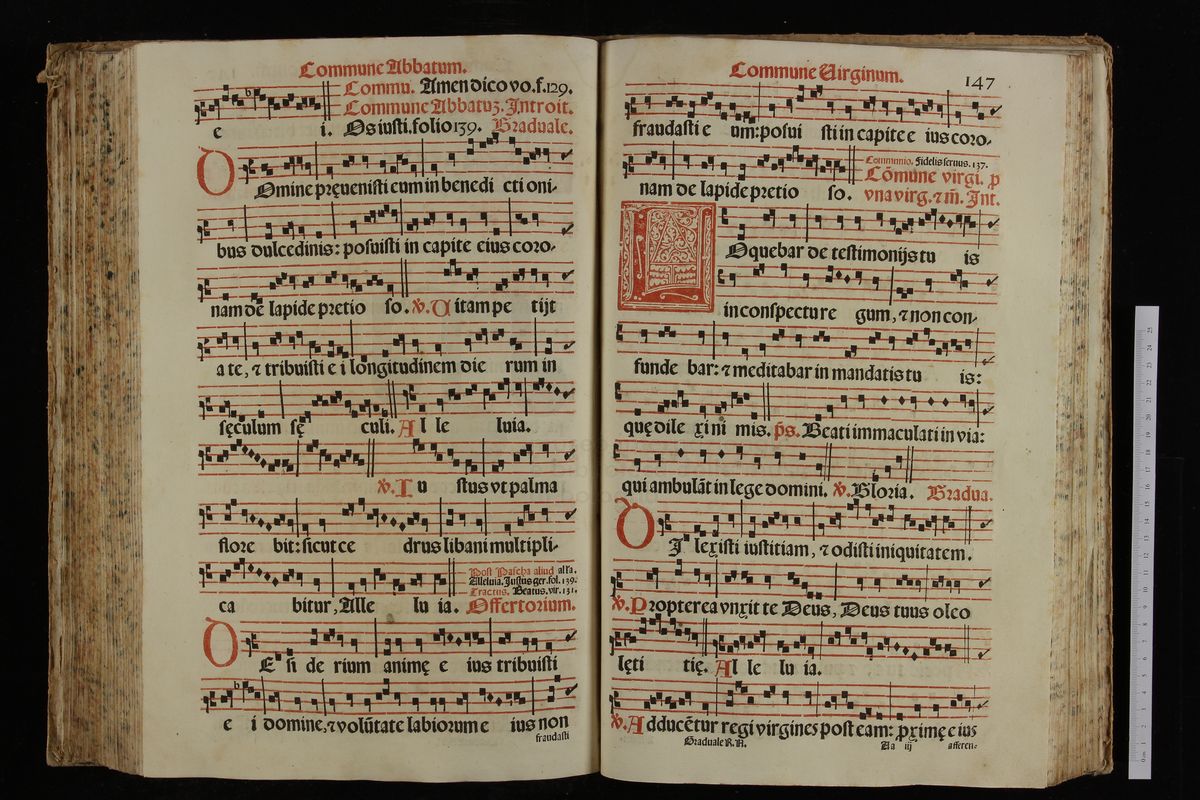 Commune Abbatum.
Commu. Amen dico vo.f.129.
Commune Abbatuʒ. Introit.
e i. Os iusti.folio 139. Graduale.
DOmine pręuenisti eum in benedi cti oni-
bus dulcedinis: posuisti in capite eius coro-
nam de lapide pretio so. ℣. Uitam pe tijt
a te, ⁊ tribuisti e i longitudinem die rum in
sęculum sę culi. Al le luia.
℣. Iu stus vt palma
flore bit: sicut ce drus libani multipli-
ca bitur, Alle lu ia.
Post Pascha aliud alľa.
Alleluia. Iustus ger.fol.139.
Tractus. Beatus.vir.131.
Offertorium.
DE si de rium animę e ius tribuisti
e i domine, ⁊ volūtate labiorum e ius non
fraudasti
Commune Uirginum.
147
fraudasti e um: posui sti in capite e ius coro-
nam de lapide pretio so.
Communio. Fidelis seruus. 137.
Cōmune virgi. ꝓ
vna virg. ⁊ m̄. Int.
LOquebar de testimonijs tu is
in conspectu re gum, ⁊ non con-
funde bar: ⁊ meditabar in mandatis tu is:
quę dile xi ni mis. p̄s. Beati immaculati in via:
qui ambulāt in lege domini. ℣. Gloria. Gradua.
DIlexisti iustitiam, ⁊ odisti iniquitatem.
℣. Propterea vnxit te Deus, Deus tuus oleo
lęti tię. Al le lu ia.
℣. Adducētur regi virgines post eam: ꝓximę e ius
Graduale R.A.
Aa iij
afferen-